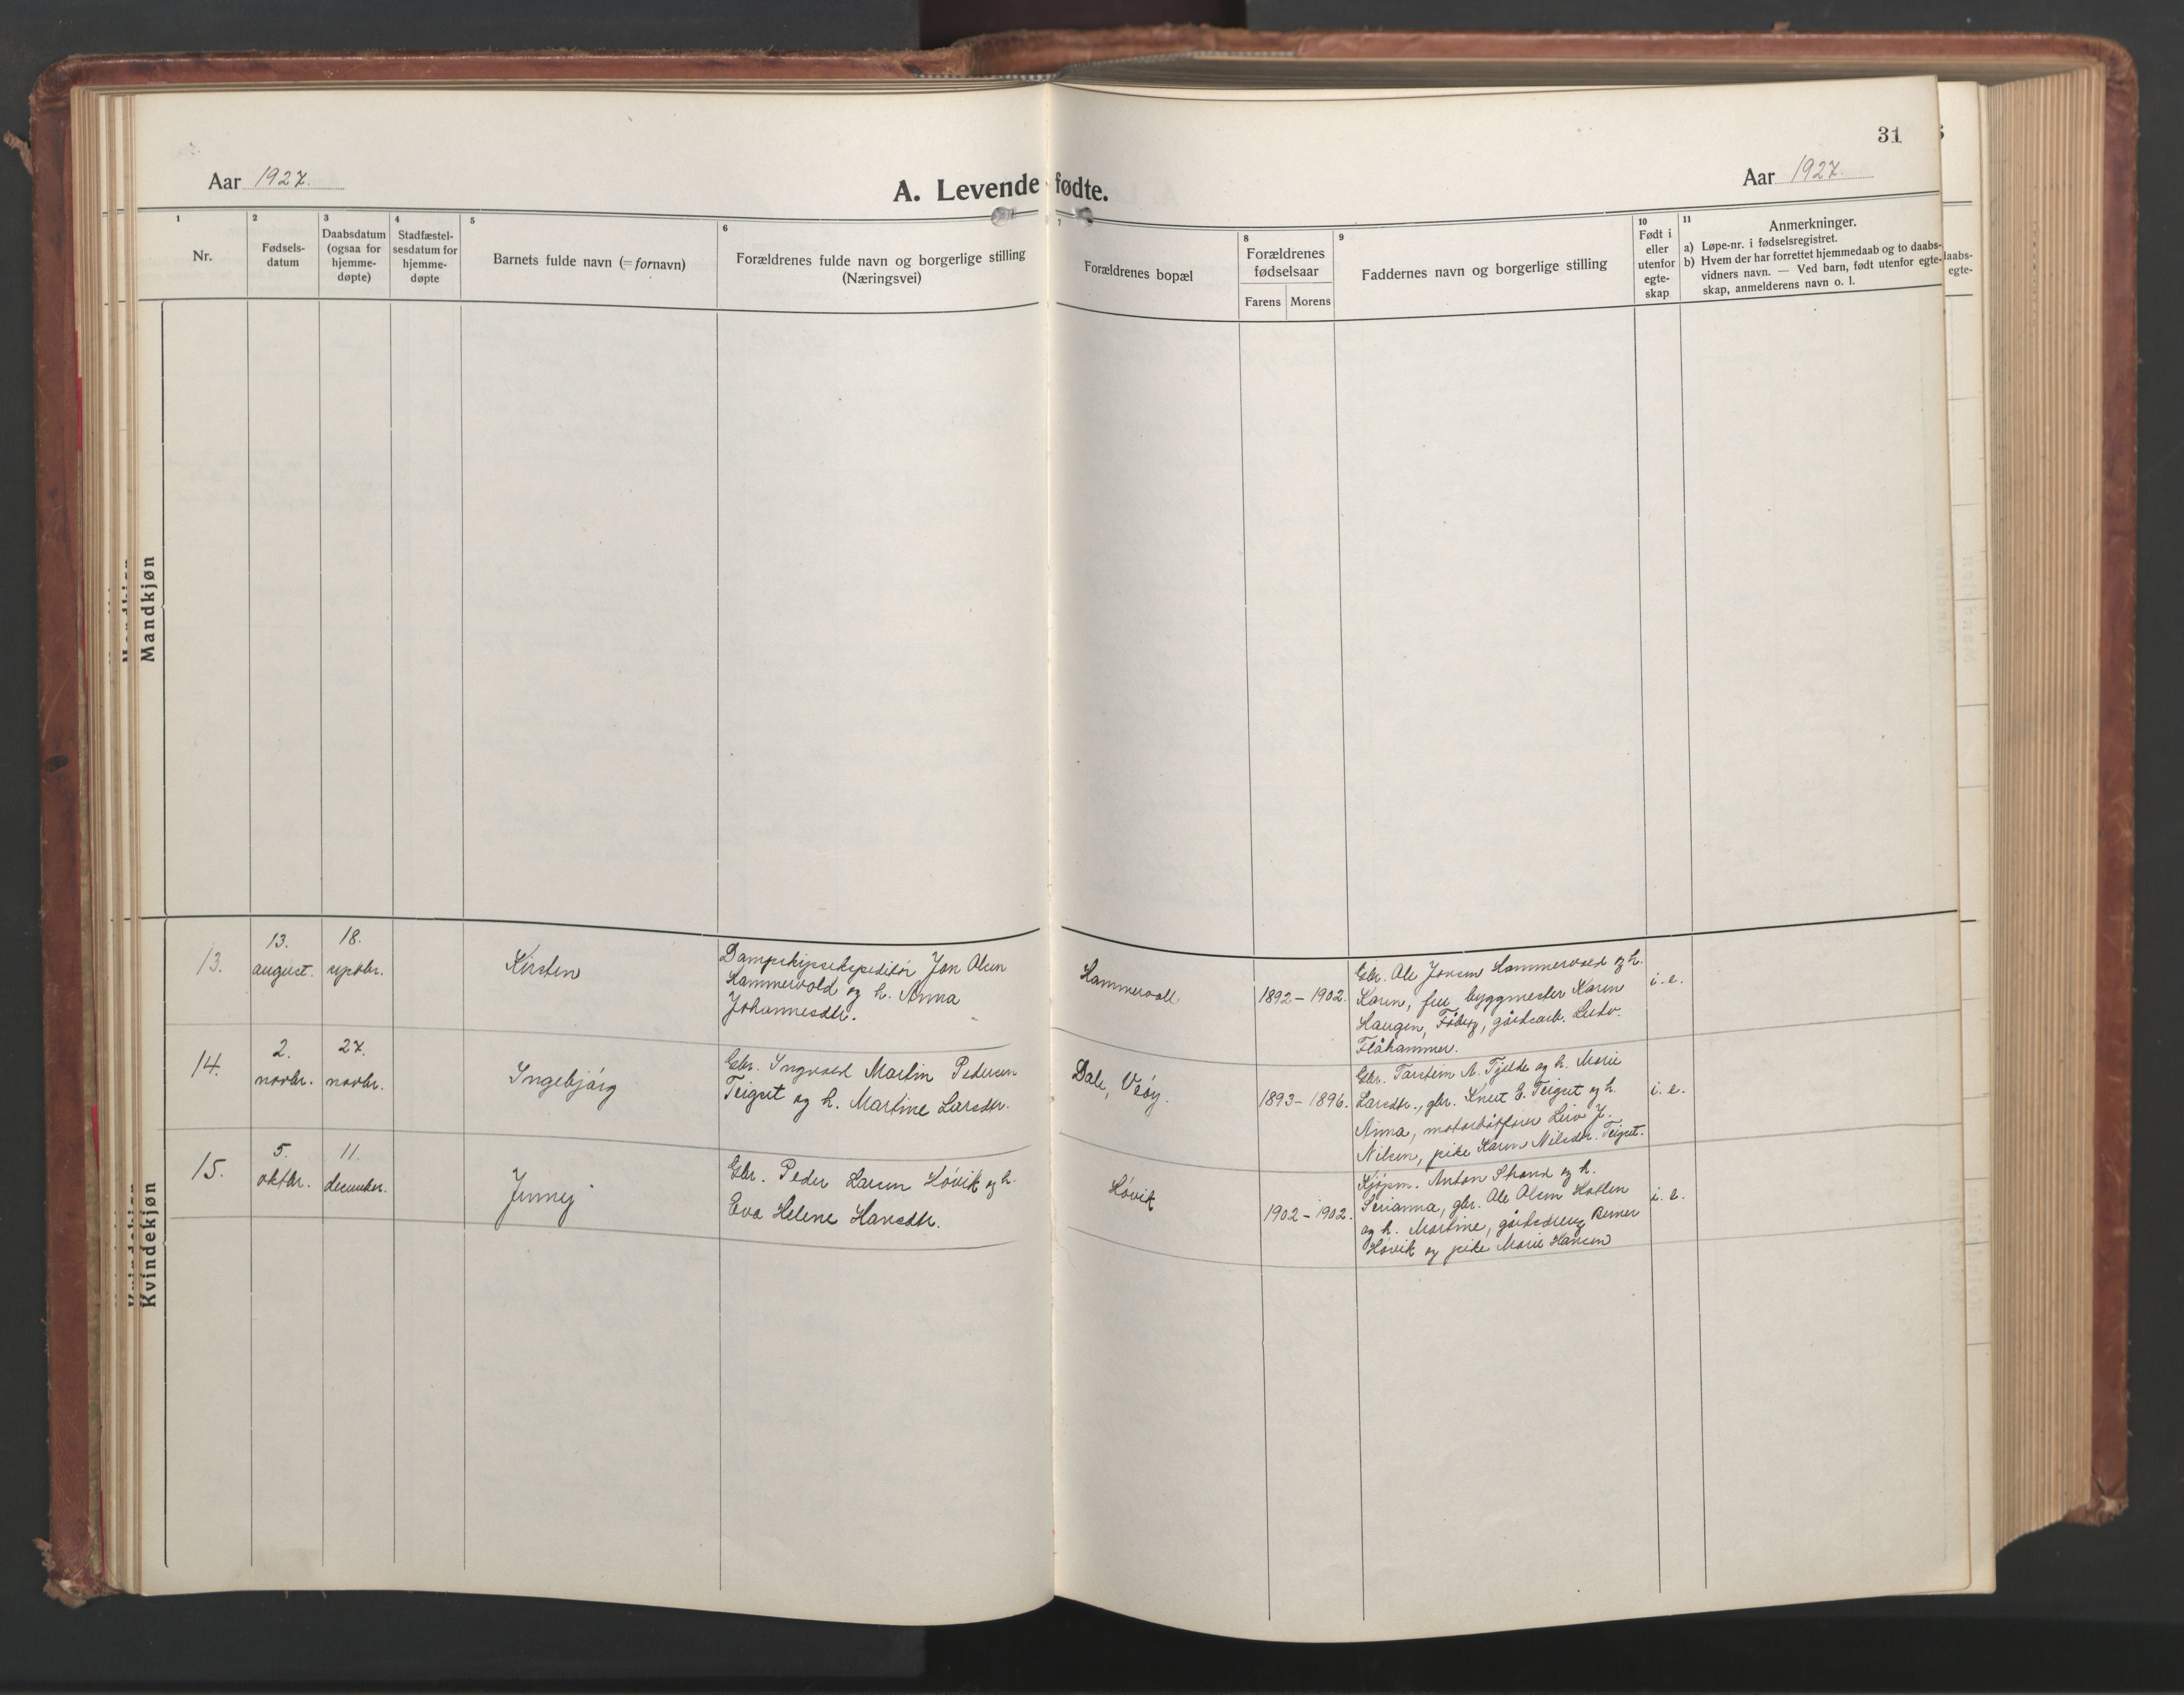 31
Aar 1927.
A. Levende fødte.
Aar 1927.
1
2
3
4
5
6
7
8
9
10
11
Nr.
Fødsels-
datum
Daabsdatum
(ogsaa for
hjemme-
døpte)
Stadfæstel-
sesdatum for
hjemme-
døpte
Barnets fulde navn (=fornavn)
Forældrenes fulde navn og borgerlige stilling
(Næringsvei)
Forældrenes bopæl
Forældrenes
fødselsaar
Farens
Morens
Faddernes navn og borgerlige stilling
Født i
eller
utenfor
egte-
skap
Anmerkninger.
a) Løpe-nr. i fødselsregistret.
b) Hvem der har forrettet hjemmedaab og to daabs-
vidners navn. — Ved barn, født utenfor egte-
skap, anmelderens navn o. l.
daabs-
egte-
Mandkjøn
Kvindekjøn
13.
13.
august.
18.
septbr.
Kirsten
Dampskipsekspeditør Jon Olsen
Hammervold og h. Anna
Johannesdtr.
Hammervoll
1892 – 1902.
Gbr. Ole Jonsen Hammervold og h.
Karen, fru byggmester Karen
Haugen, Fåberg, gårdsarb. Ludv.
Flåhammer.
i. e.
14.
2.
novbr.
27.
novbr.
Ingebjørg
Gbr. Ingvald Martin Pedersen
Teigset og h. Martine Larsdtr.
Dale, Veøy.
1893 – 1896.
Gbr. Torstein A. Tjelde og h. Marie
Larsdtr., gbr. Knut E. Teigset og h.
Anna, motorbåtfører Leiv J.
Nilsen, pike Karen Nilsdtr. Teigset.
i. e.
15.
5.
oktbr.
11.
december.
Jenney
Gbr. Peder Larsen Høvik og h.
Eva Helene Hansdtr.
Høvik
1902 – 1902.
Kjøpm. Anton Strand og h.
Serianna, gbr. Ole Olsen Hatlen
og h. Martine, gårdsdreng Berner
Høvik og pike Marie Hansen
i. e.